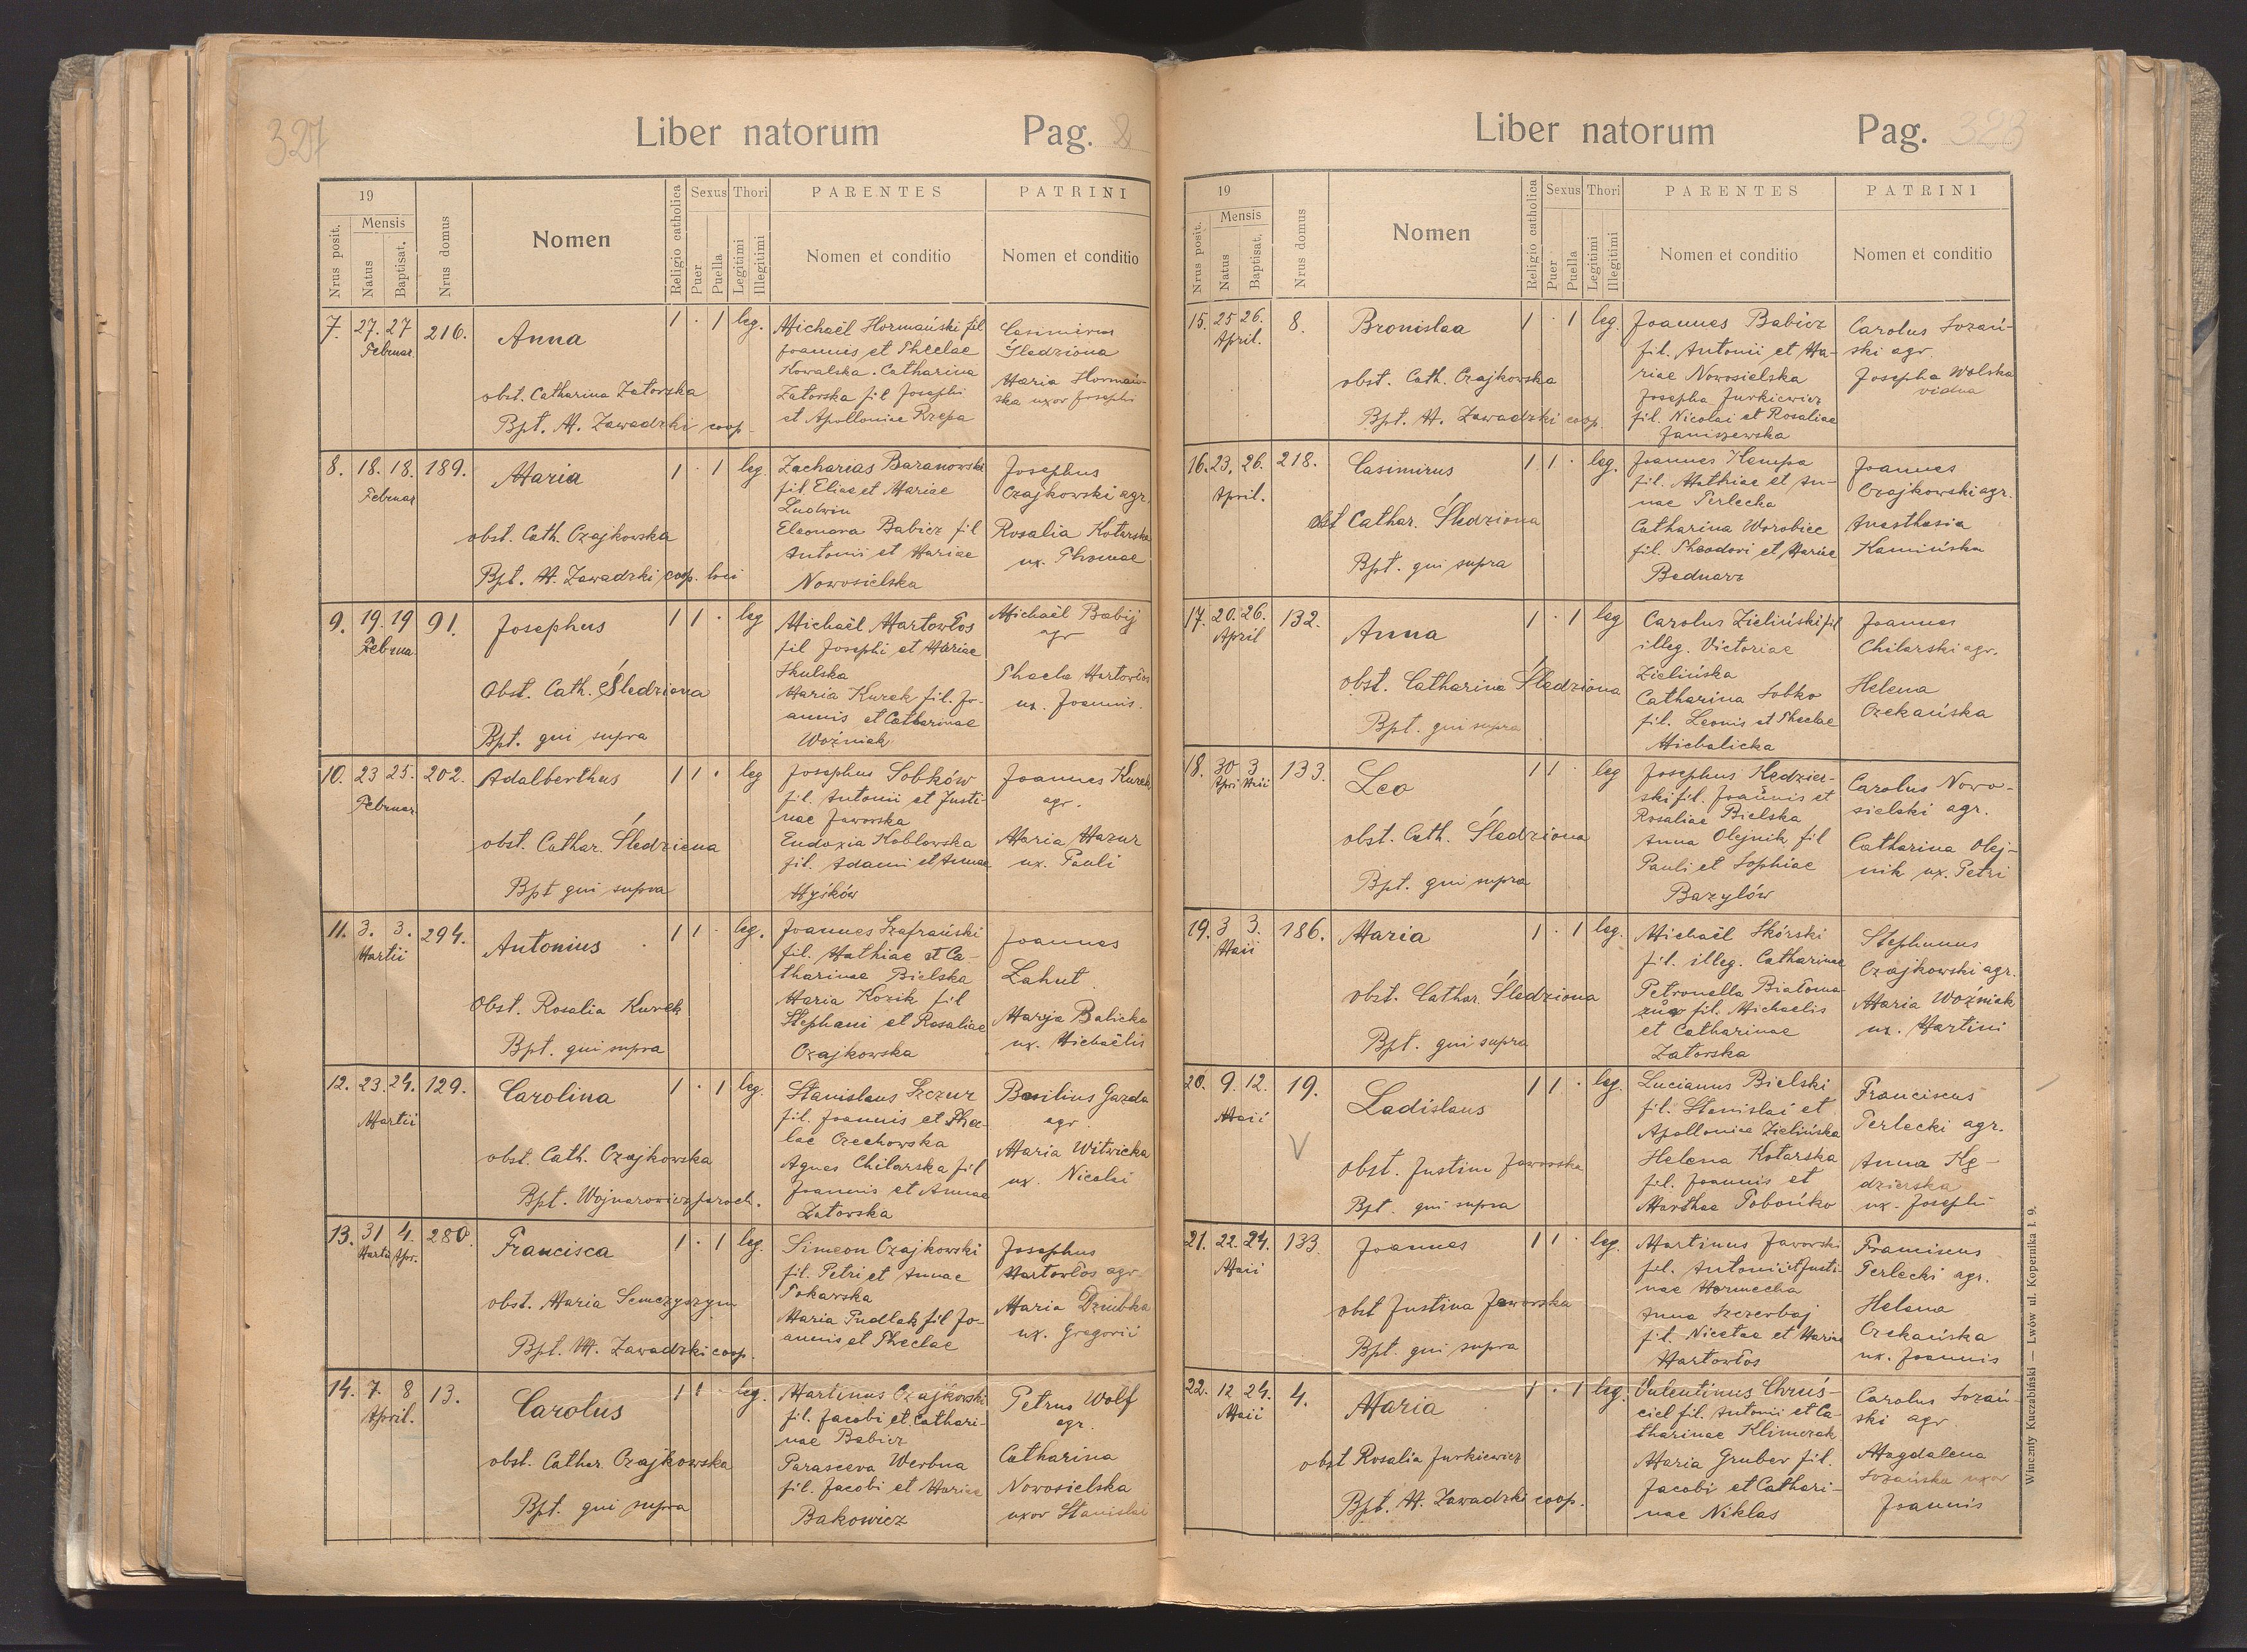 327
Liber natorum Pag. 2
19
Nrus posit.
Mensis
Natus
Baptisat.
Nrus domus
Nomen
Religio catholica
Sexus
Puer
Puella
Thori
Legitimi
Illegitimi
PARENTES
Nomen et conditio
PATRINI
Nomen et conditio
7. 27. 27 Februar 216.
Anna
obst. Catharina Zatorska
Bpt. M. Zawadzki coop.
1 . 1 leg.
Michaël Hormański fil
Joannis et Theclae
Kowalska . Catharina
Zatorska fil Josephi
et Apolloniae Rzepa
Casimirus
Śledziona
Maria Hormań-
ska uxor Josephi
8. 18. 18. Februar 189.
Maria
obst. Cath. Czajkowska
Bpt. M. Zawadzki coop. loci
1 . 1 leg
Zacharias Baranowski
fil. Eliae et Mariae
Ludwin
Eleonora Babicz fil
Antonii et Mariae
Nowosielska
Josephus
Czajkowski agr.
Rosalia Kotarska
ux. Thomae
9. 19. 19 Februa. 91.
Josephus
Obst. Cath. Śledziona
Bpt. qui supra
1 1 . leg
Michaël Martowłos
fil Josephi et Mariae
Skulska
Maria Kurek fil. Jo-
annis et Catharinae
Woźniak
Michaël Babij
agr
Thecla Martowłos
ux. Joannis.
10. 23 25. Februar 202.
Adalberthus
obst. Cathar. Śledziona
Bpt qui supra
1 1 . leg
Josephus Sobków
fil. Antonii et Justi-
nae Jaworska
Eudoxia Koblowska
fil. Adami et Annae
Myśków
Joannes Kurek
agr.
Maria Mazur
ux. Pauli
11. 3. 3. Martii 294.
Antonius
Obst. Rosalia Kurek
Bpt. qui supra
1 1 . leg.
Joannes Szafrański
fil. Mathiae et Ca-
tharinae Bielska
Maria Kozik fil
Stephani et Rosaliae
Czajkowska
Joannes
Łahut.
Marya Balicka
ux. Michaëlis
12. 23. 24. Martii 129.
Carolina
obst. Cath. Czajkowska
Bpt. Wojnarowicz paroch.
1 . 1 leg.
Stanislaus Szczur
fil. Joannis et The-
lae Orechowska
Agnes Chilarska fil
Joannis et Annae
Zatorska
Basilius Gazda
agr.
Maria Witwicka
ux. Nicolai
13. 31 4. Martii Apr. 280
Francisca
obst. Maria Semczyszyn
Bpt. M. Zawadzki coop.
1 . 1 leg.
Simeon Czajkowski
fil. Petri et Annae
Tokarska
Maria Pudlak fil Jo-
annis et Theclae
Josephus
Martowłos agr.
Maria Dziubka
ux. Gregorii
14. 7. 8 April. 13.
Carolus
obst. Cathar. Czajkowska
Bpt. qui supra
1 1 . leg.
Martinus Czajkowski
fil. Jacobi et Cathari-
nae Babicz
Parasceva Werbna
fil. Jacobi et Mariae
Bakowicz
Petrus Wolf
agr.
Catharina
Nowosielska
uxor Stanislai
Liber natorum Pag. 328
19
Nrus posit.
Mensis
Natus
Baptisat.
Nrus domus
Nomen
Religio catholica
Sexus
Puer
Puella
Thori
Legitimi
Illegitimi
PARENTES
Nomen et conditio
PATRINI
Nomen et conditio
15. 25 26. April. 8.
Bronislaa
obst. Cath. Czajkowska
Bpt. M. Zawadzki coop.
1 . 1 leg.
Joannes Babicz
fil. Antonii et Ma-
riae Nowosielska
Josepha Jurkiewicz
fil. Nicolai et Rosaliae
Janiszewska
Carolus Sozań-
ski agr.
Josepha Wolska
vidua
16. 23. 26. April. 218.
Casimirus
obst Cathar. Śledziona
Bpt. qui supra
1 1 . leg.
Joannes Kempa
fil. Mathiae et An-
nae Perlecka
Catharina Worobiec
fil. Theodori et Mariae
Bednarz
Joannes
Czajkowski agr.
Anasthasia
Kamińska
17. 20. 26. April 132.
Anna
obst. Catharina Śledziona
Bpt. qui supra
1 . 1 leg
Carolus Zieliński fil
illeg. Victoriae
Zielińska
Catharina Sobko
fil. Leonis et Theclae
Michalicka
Joannes
Chilarski agr.
Helena
Czekańska
18. 30 3 Apri Maii 133.
Leo
obst. Cath. Śledziona
Bpt. qui supra
1 1 . leg
Josephus Kędzier-
ski fil. Joannis et
Rosaliae Bielska
Anna Olejnik fil
Pauli et Sophiae
Bazylów
Carolus Nowo-
sielski agr.
Catharina Olej-
nik ux. Petri
19. 3 3. Maii 186.
Maria
obst. Cathar. Śledziona
Bpt. qui supra
1 . 1 leg.
Michaël Skórski
fil. illeg. Catharinae
Petronella Białoma-
zur fil. Michaelis
et Catharinae
Zatorska
Stephanus
Czajkowski agr.
Maria Woźniak
ux. Martini
20. 9. 12. Maii 19.
V
Ladislaus
obst. Justina Jaworska
Bpt. qui supra
1 1 . leg.
Lucianus Bielski
fil. Stanislai et
Apolloniae Zielińska
Helena Kotarska
fil. Joannis et
Marthae Tobońko
Franciscus
Perlecki agr.
Anna Kę-
dzierska
ux. Josephi
21. 22. 24. Maii 133.
Joannes
obst Justina Jaworska
Bpt. qui supra
1 1 . leg.
Martinus Jaworski
fil. Antonii et Justi-
nae Wormecha
Anna Szczerbaj
fil. Nicetae et Mariae
Martowłos
Franciscus
Perlecki agr.
Helena
Czekańska
ux. Joannis
22. 12 24. Maii 4.
Maria
obst Rosalia Jurkiewicz
Bpt. M. Zawadzki coop.
1 . 1 leg.
Valentinus Chruś-
ciel fil. Antonii et Ca-
tharinae Klimczak
Maria Gruber fil.
Jacobi et Cathari-
nae Niklas
Carolus Sozań-
ski agr.
Magdalena
Sozańska uxor
Joannis
Winczenty Kuczabiński — Lwów ul. Kopernika l. 9.